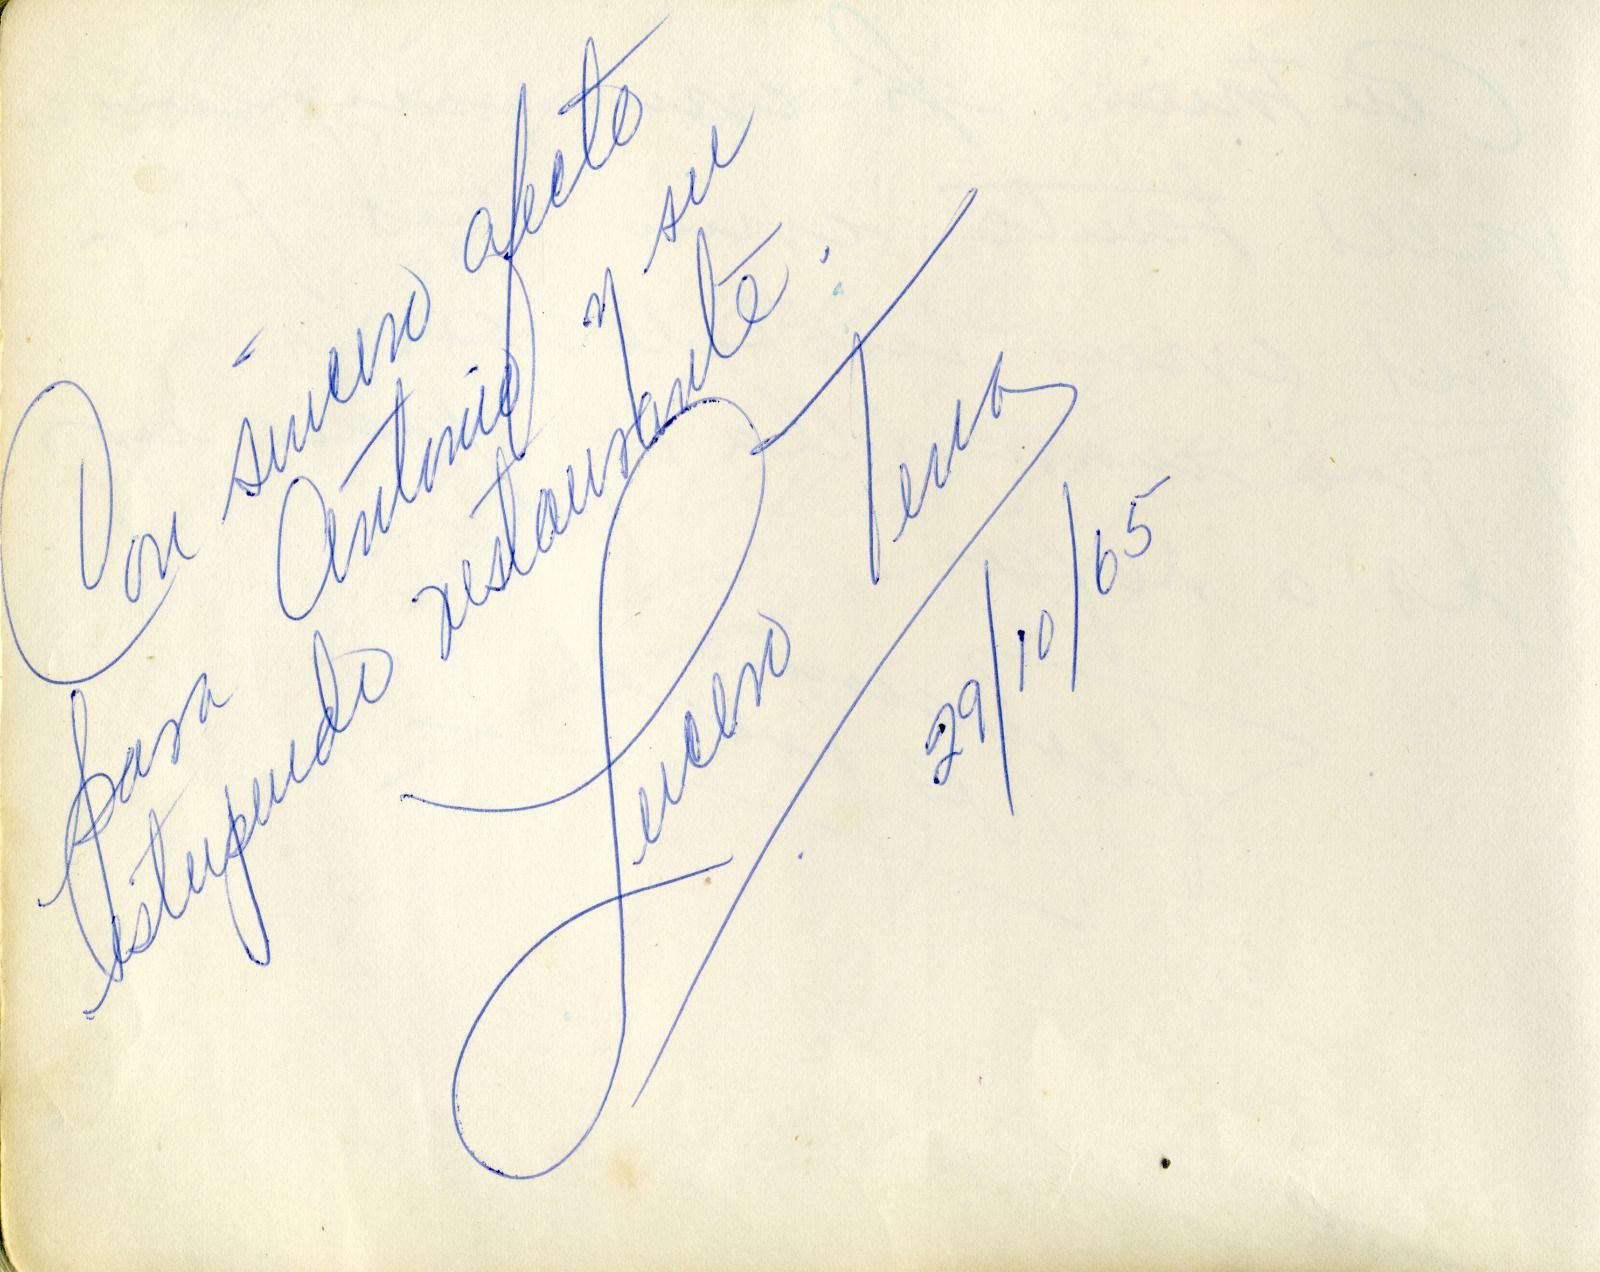 Con sincero afecto
para Antonio y su
estupendo restaurante.
Lucero Tena
29/10/65